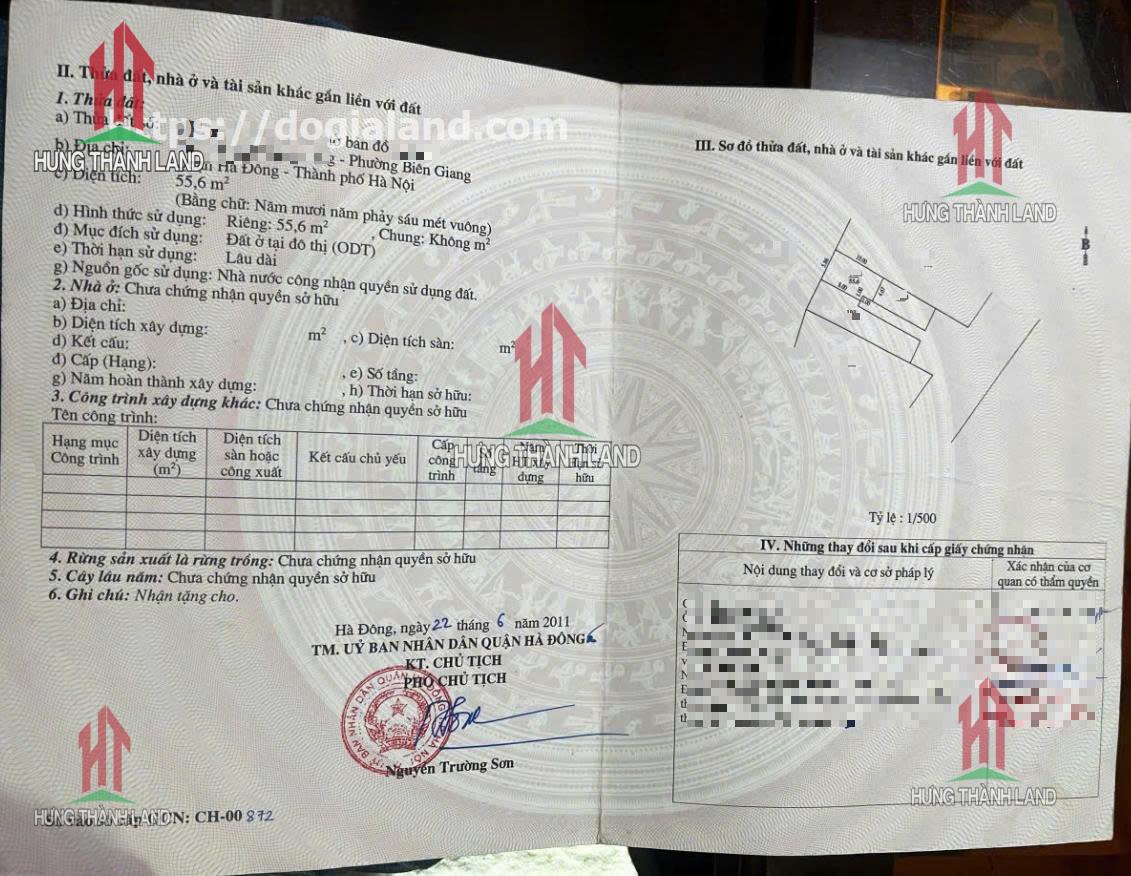 II. Thửa đất, nhà ở và tài sản khác gắn liền với đất
1. Thửa đất:
a) Thửa đất số:
bản đồ
https://dogialand.com
b) Địa chỉ:
- Phường Biên Giang
Hà Đông - Thành phố Hà Nội
c) Diện tích: 55,6 m²
(Bằng chữ: Năm mươi năm phảy sáu mét vuông)
d) Hình thức sử dụng: Riêng: 55,6 m² , Chung: Không m²
đ) Mục đích sử dụng: Đất ở tại đô thị (ODT)
e) Thời hạn sử dụng: Lâu dài
g) Nguồn gốc sử dụng: Nhà nước công nhận quyền sử dụng đất.
2. Nhà ở: Chưa chứng nhận quyền sở hữu
a) Địa chỉ:
b) Diện tích xây dựng: m² , c) Diện tích sàn: m²
d) Kết cấu:
đ) Cấp (Hạng): , e) Số tầng:
g) Năm hoàn thành xây dựng: , h) Thời hạn sở hữu:
3. Công trình xây dựng khác: Chưa chứng nhận quyền sở hữu
Tên công trình:
Hạng mục Công trình
Diện tích xây dựng (m²)
Diện tích sàn hoặc công xuất
Kết cấu chủ yếu
Cấp công trình
tầng
Năm HT xây dựng
Thời hạn sở hữu
4. Rừng sản xuất là rừng trồng: Chưa chứng nhận quyền sở hữu
5. Cây lâu năm: Chưa chứng nhận quyền sở hữu
6. Ghi chú: Nhận tặng cho.
Hà Đông, ngày 22 tháng 6 năm 2011
TM. UỶ BAN NHÂN DÂN QUẬN HÀ ĐÔNG
KT. CHỦ TỊCH
PHÓ CHỦ TỊCH
Nguyễn Trường Sơn
GCN: CH-00 872
III. Sơ đồ thửa đất, nhà ở và tài sản khác gắn liền với đất
B
55,6
Tỷ lệ : 1/500
IV. Những thay đổi sau khi cấp giấy chứng nhận
Nội dung thay đổi và cơ sở pháp lý
Xác nhận của cơ quan có thẩm quyền
HƯNG THÀNH LAND
HƯNG THÀNH LAND
HƯNG THÀNH LAND
HƯNG THÀNH LAND
HƯNG THÀNH LAND